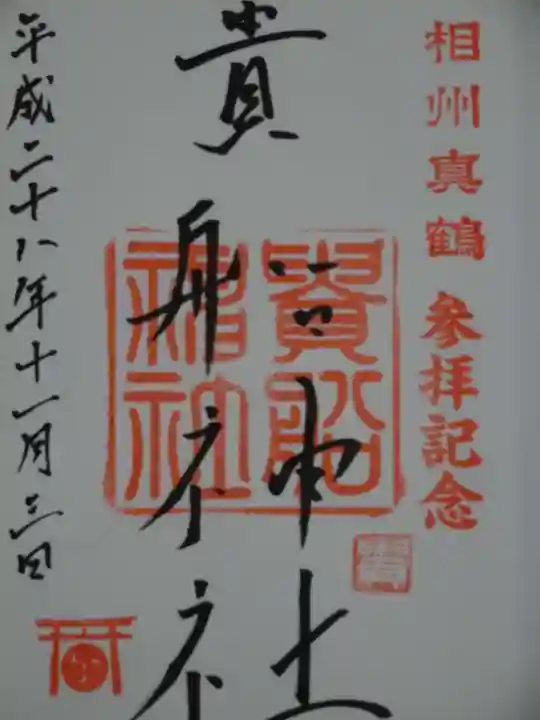 相州真鶴 参拝記念
貴船神社
貴船神社
平成二十八年十一月三日